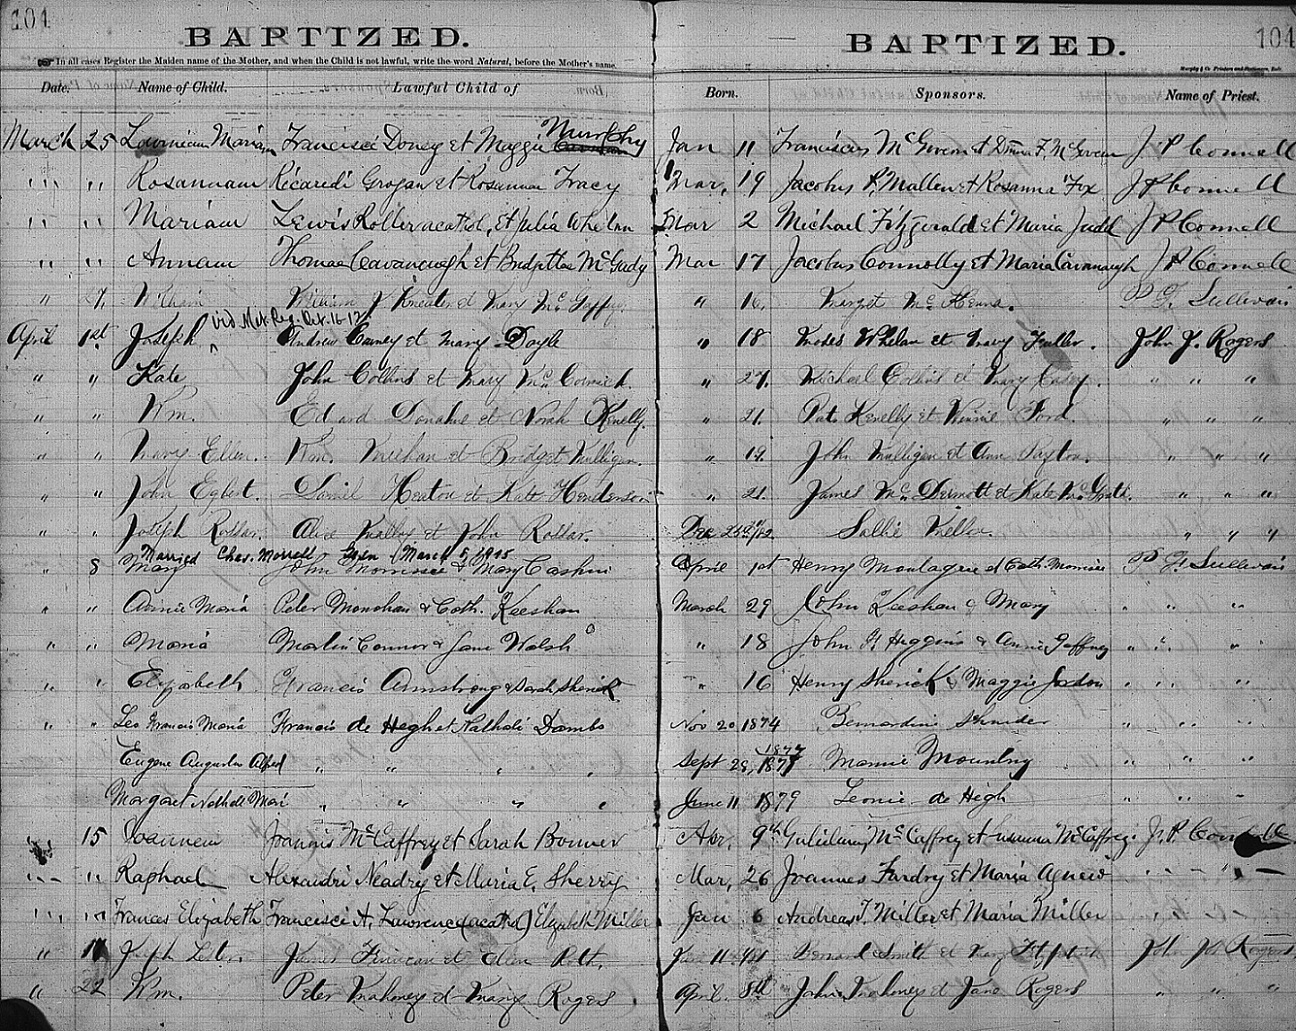 104 104
BAPTIZED. BAPTIZED.
In all cases Register the Maiden name of the Mother, and when the Child is not lawful, write the word Natural, before the Mother's name.
Murphy & Co. Printers and Stationers, Balt.
Date. Name of Child. Lawful Child of Born. Sponsors. Name of Priest.
Murphy
March 25 Mariam Francisci Doney et Maggie Jan 11 Franciscus McGovern et F. McGovern J P Connell
" " Rosannam Ricardi Grogan et Rosanna Tracy Mar. 19 Jacobus P. Mallen et Rosanna Fox J P Connell
" " Mariam Lewis Roller acathol. et Julia Whelan Mar 2 Michael Fitzgerald et Maria Judd J P Connell
" " Annam Thomae Cavanaugh et Bridgittae Mar 17 Jacobus Connolly et Maria Cavanaugh J P Connell
" 27, William J. et Mary Mc " 16, Margt Mc Kenna. P. F. Sullivan
Vid. Mat. Reg. Oct. 16-12
April 1st Joseph Andrew Carney et Mary Doyle " 18 Moses Whelan et Mary Fuller. John J. Rogers
" " Kate John Collins et Mary McCormick. " 27. Michael Collins et Mary Casey. " " "
" " Wm. Edward Donahue et Norah Kenelly. " 21. Pat. Kenelly et Winnie Ford. " " "
" " Mary Ellen. Wm. Meehan et Bridget Mulligan. " 19. John Mulligan et Ann Payton. " " "
" " John Egbert. Daniel Heaton et Kate Henderson " 21. James McDermott et Kate McGrath. " " "
" " Joseph Alice Malloy et John Dec 25th /82. Sallie Miller. " " "
Married Chas. Morrell March 5, 1915
" 8 Mary John Morrissee & Mary Cashin April 1st Henry Montague et Cath. Morrisee P. F. Sullivan
" " Annie Maria Peter Monahan & Cath. Keeshan March 29 John Keeshan & Mary " " "
" " Maria Martin Connor & Jane Walsh " 18 John F. Higgins & Annie Gaffney " " "
" " Elizabeth Francis Armstrong & Sarah Sherick " 16 Henry Sherick & Maggie Jordan " " "
" " Leo Francis Maria Francis de Hegh et Nathali Dambo Nov 20 1874 Bernardine Shnider " " "
1877
Eugene Augustus Alfred " " " " Sept 28, 187 Mamie " " "
Margaret Nathali Mari " " " " June 11 1879 Leonie de High " " "
" 15 Joannem Joannis McCaffrey et Sarah Bonner Apr. 9th McCaffrey et McCaffrey J. P. Connell
" " Raphael Alexandri Neadry et Maria E. Sherry Mar. 26 Joannes Fardry et Maria Agnew " " "
" " Frances Elizabeth Francisci A. Lawrence (acathol) Elizabeth Miller Jan 6 Andreas T. Miller et Maria Miller " " "
" Joseph James Finican et Ellen Jan 11 Bernard Smith et Mary Fitzpatrick John J. Rogers.
" 22 Wm. Peter Mahoney et Mary Rogers April 8th John Mahoney et Jane Rogers " " "